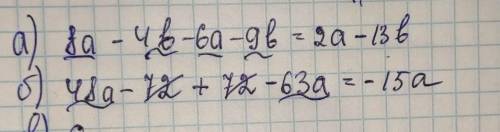 а) 8a - 4b - 6a - 9b = 2a - 13b
б) 48a - 7x + 7x - 63a = -15a